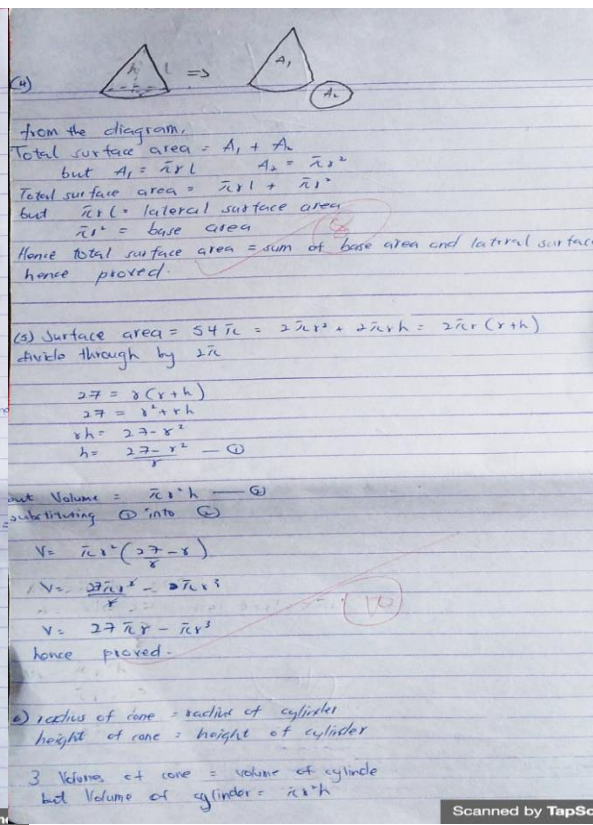 (4)
h l => A₁
A₂
from the diagram,
Total surface area = A₁ + A₂
but A₁ = πrl A₂ = πr²
Total surface area = πrl + πr²
but πrl = lateral surface area
πr² = base area
Hence total surface area = sum of base area and lateral surface
hence proved.
(5) Surface area = 54π = 2πr² + 2πrh = 2πr(r+h)
divide through by 2π
27 = r(r+h)
27 = r² + rh
rh = 27 - r²
h = 27 - r² / r — ①
but Volume = πr²h — ②
substituting ① into ②
V = πr²(27/r - r)
V = 27πr²/r - πr³
V = 27πr - πr³
hence proved.
6) radius of cone = radius of cylinder
height of cone = height of cylinder
3 Volumes of cone = volume of cylinde
but Volume of cylinder = πr²h
Scanned by TapSc